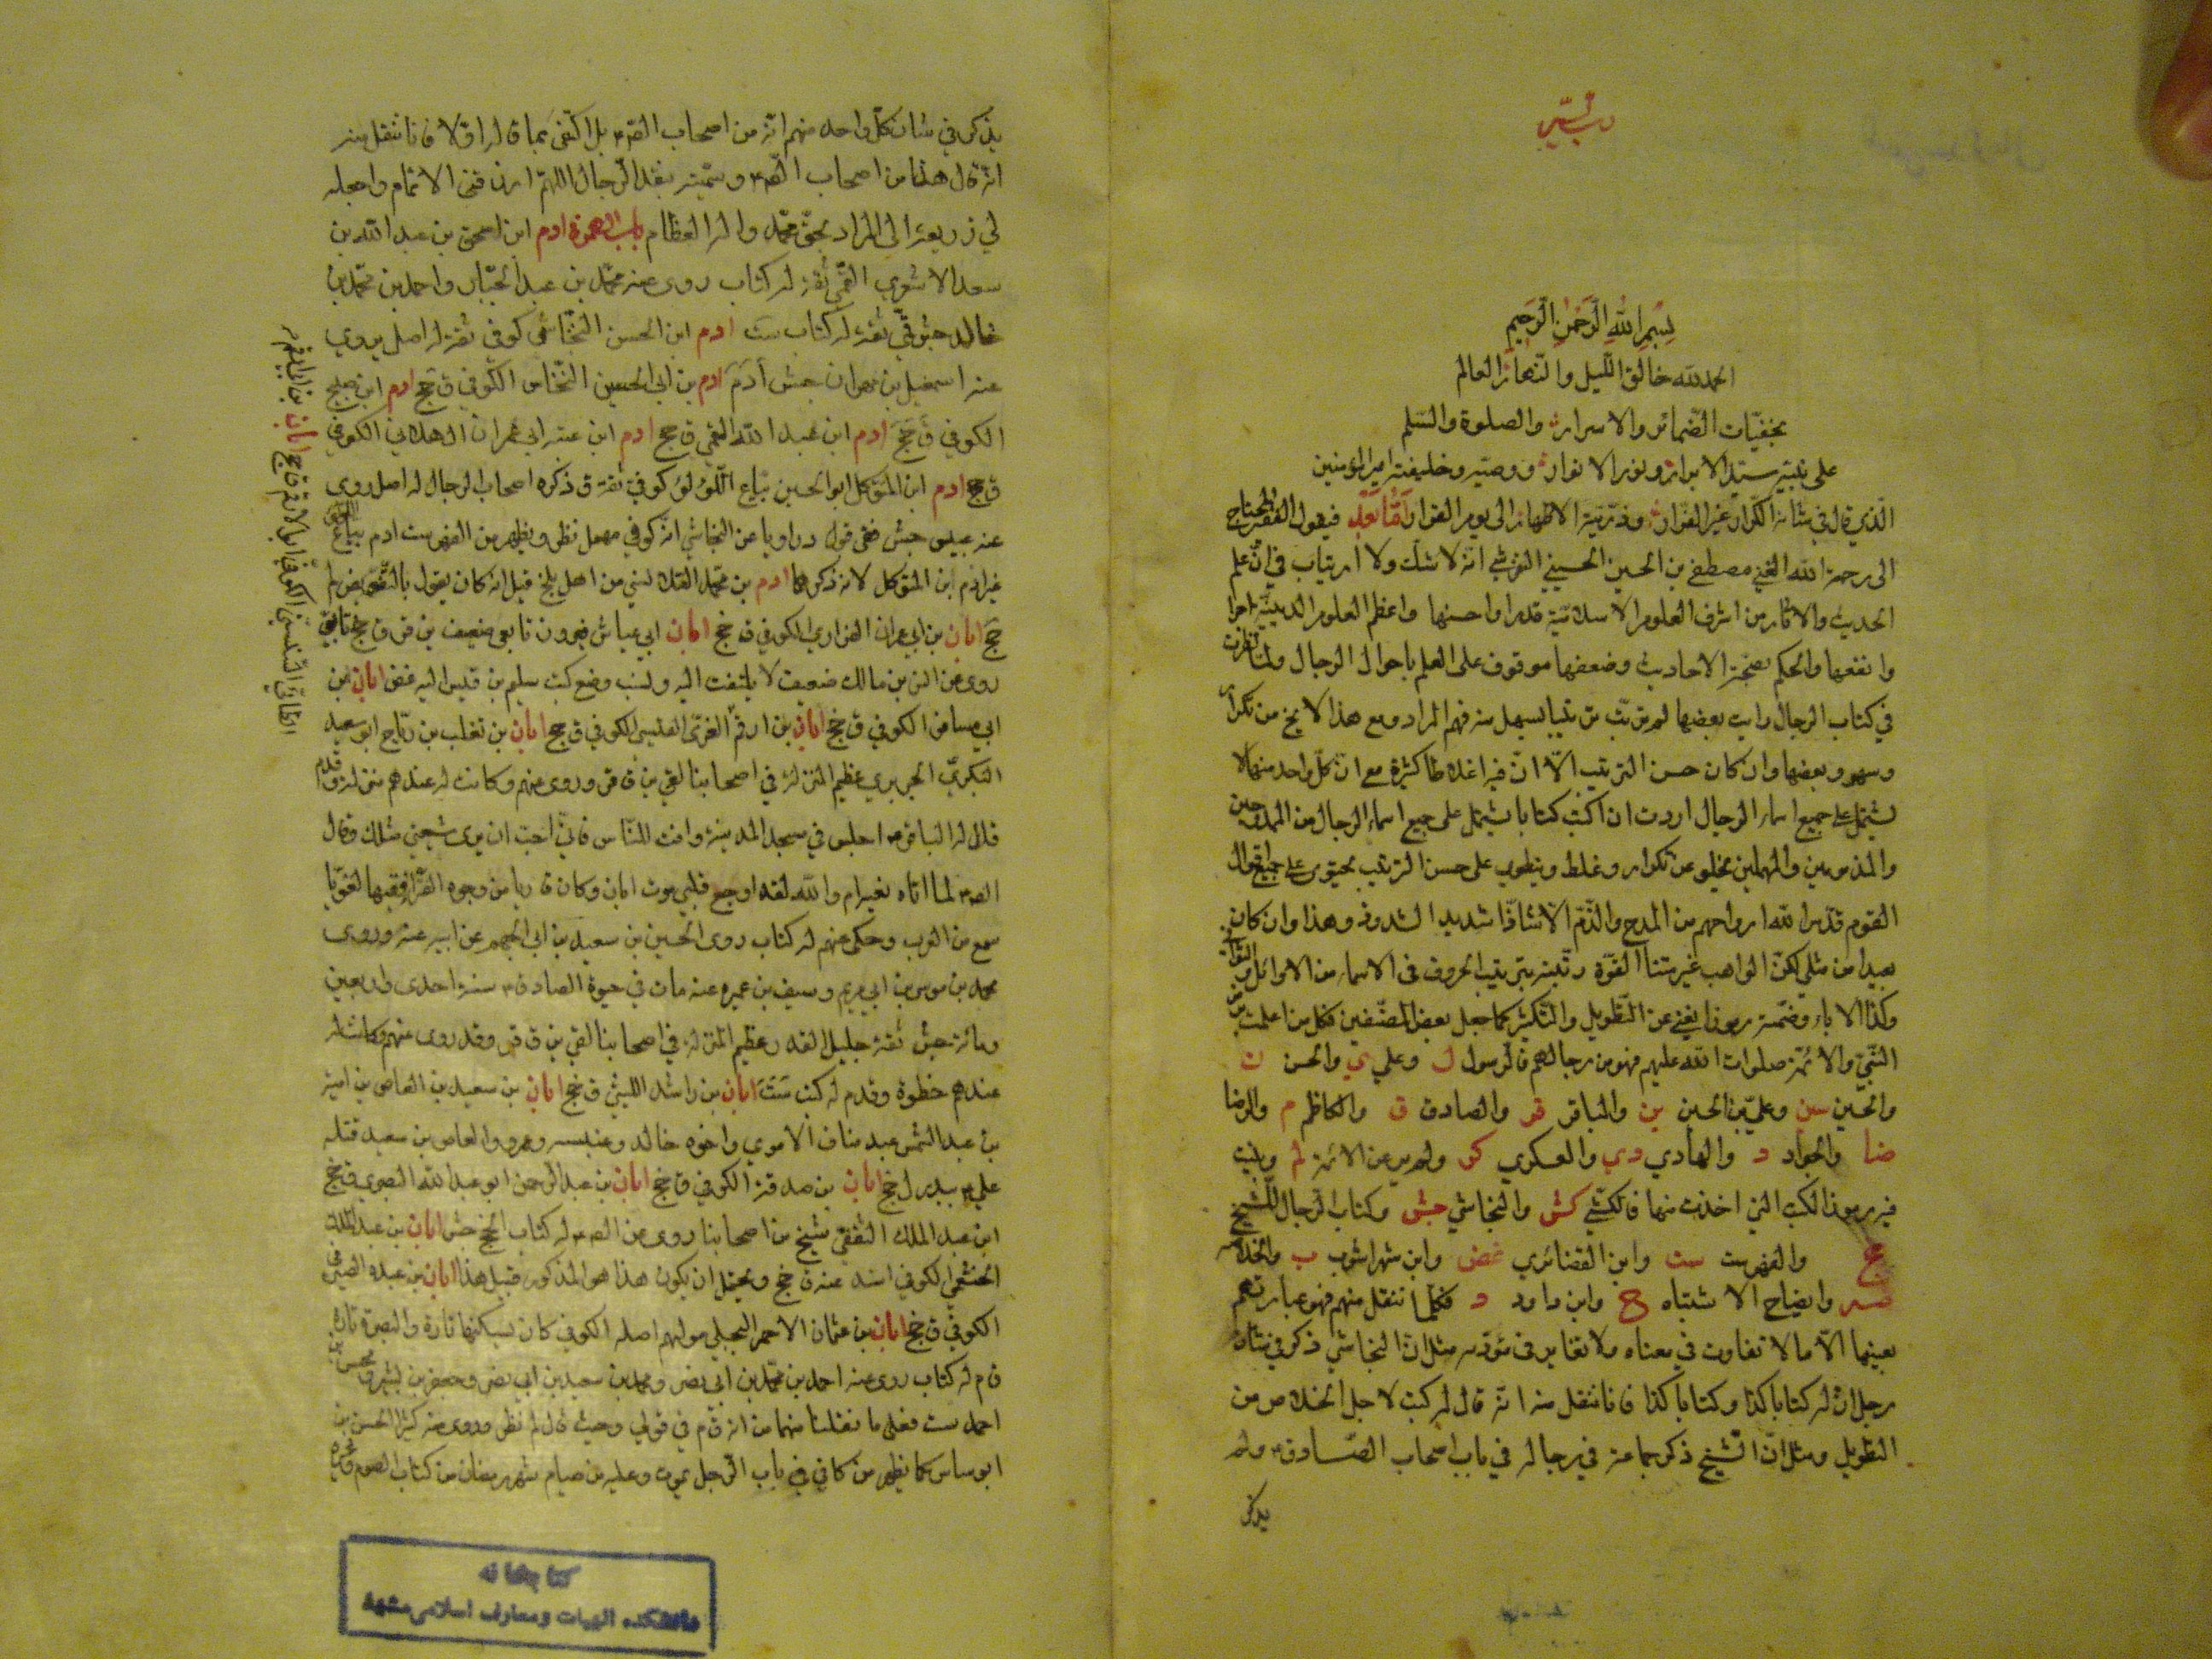 رب يسّر
بسم الله الرحمن الرحيم
الحمد لله خالق اللّيل والنّهار العالم
بخفيّات الضّمائر والاسرار والصلوة والسّلم
على نبيّه سيّد الابرار ونور الانوار ووصيّه وخليفته امير المؤمنين
الّذي قال في شانه الكرّار غير الفرّار وذرّيّته الاطهار الى يوم القرار امّا بعد فيقول الفقير المحتاج
الى رحمة الله الغني مصطفى بن الحسين الحسيني التفرشي انّه لا شك ولا ارتياب في انّ علم
الحديث والاثار من اشرف العلوم الاسلاميّة قدرا واحسنها واعظم العلوم الدينيّة اجرا
وانفعها والحكم بصحّة الاحاديث وضعفها موقوف على العلم باحوال الرجال ولمّا نظرت
في كتاب الرجال رايت بعضها لم يرتّب ترتيبا يسهل منه فهم المراد ومع هذا لا يخ من تكرار
وسهو وبعضها وان كان حسن الترتيب الّا انّ فيه اغلاطا كثيرة مع انّ كلّ واحد منها لا
يشتمل على جميع اسماء الرجال اردت ان اكتب كتابا يشتمل على جميع اسماء الرجال من الممدوحين
والمذمومين والمهملين يخلو عن تكرار وغلط وينطوي على حسن الترتيب يحتوى على جميع اقوال
القوم قدّس الله ارواحهم من المدح والذّم الّا شاذّا شديد الشذوذ وهذا وان كان
بعيدا من مثلي لكنّ الواهب غير متناه القوّة رتّبته بترتيب الحروف في الاسماء من الاوائل والثواني
وكذا الاباء وضمّنته رموزا يغني عن التّطويل والتّكثير كما جعل بعض المصنّفين فكل من اعلمت من
النّبيّ والائمّة صلوات الله عليهم فهو من رجالهم فالرسول ل وعلي ي والحسن ن
والحسين سين وعليّ بن الحسين ين والباقر قر والصادق ق والكاظم م والرضا
ضا والجواد د والهادي دي والعسكري كر ولم يرو عن الائمة لم وبيّنت
فيه رموز الكتب التي اخذت منها فالكشّي كش والنجاشي جش وكتاب الرجال للشّيخ
جخ والفهرست ست وابن الغضائري غض وابن شهراشوب ب والخلاصه
صه وايضاح الاشتباه ح وابن داود د فكلّما ننقل منهم فهو عبارتهم
بعينها الّا ما لا تفاوت في معناه ولا تغاير في مؤدّيه مثل انّ النجاشي ذكر في شان
رجل انّ له كتابا كذا وكتابا كذا فانا ننقل منه انّه قال له كتب لاجل الخلاص من
التطويل ومثل انّ الشّيخ ذكر جماعة في رجاله في باب اصحاب الصّادق ولم
يذكر
يذكر في شان كلّ واحد منهم انّه من اصحاب الصّ بل اكتفى بما قاله اوّلا فانا ننقل منه
انّه قال هذا من اصحاب الصّ وسمّيته بنقد الرّجال اللّهم ارزقني الاتمام واجعله
لي ذريعة الى المراد بحقّ محمّد واله العظام باب الهمزة ادم ابن اسحق بن عبد الله بن
سعد الاشعري القمّي ثقة له كتاب روى عنه محمّد بن عبد الجبّار واحمد بن محمّد بن
خالد جش قمّي ثقة له كتاب ست ادم ابن الحسين النّخّاس كوفي ثقة له اصل يروي
عنه اسمعيل بن مهران جش ادم ادم بن ابي الحسين النّخّاس الكوفي ق جخ ادم ابن صبيح
الكوفي ق جخ ادم ابن عبد الله القمي ق جخ ادم ابن عيينه ابي عمران الهلالي الكوفي
ق جخ ادم ابن المتوكل ابو الحسين بيّاع اللّؤلؤ كوفي ثقة ق ذكره اصحاب الرجال له اصل روى
عنه عبيس جش ففي قول د راويا عن النجاشي انّه كوفي مهمل نظر ويظهر من الفهرست ادم بيّاع اللؤلؤ
غير ادم ابن المتوكل لانه ذكرهما ادم بن محمّد القلانسي من اهل بلخ قيل انه كان يقول بالتّفويض لم
جخ ابان بن ابي عمران الفزاري الكوفي ق جخ ابان ابي عياش فيروز تابعي ضعيف ين قر ق جخ تابعي
روى عن انس بن مالك ضعيف لا يلتفت اليه وينسب وضع كتب سليم بن قيس اليه غض ابان بن
ابي مسافر الكوفي ق جخ ابان بن ارقم العنزي القيسي الكوفي ق جخ ابان بن تغلب بن رباح ابو سعيد
البكريّ الجريري عظيم المنزلة في اصحابنا لقي ين ق قر وروى عنهم وكانت له عندهم منزلة وقدم
قال له الباقر اجلس في مسجد المدينة وافت النّاس فانّي احبّ ان يرى شيعتي مثلك وقال
الص لما اتاه نعيه ام والله لقد اوجع قلبي موت ابان وكان قاريا من وجوه القرّاء فقيها لغويّا
سمع من العرب وحكى عنهم له كتاب روى الحسين بن سعيد بن ابي الجهم عن ابيه عنه وروى
محمد بن موسى بن ابي مريم وسيف بن عميره عنه مات في حيوة الصادق سنة احدى واربعين
ومائة جش ثقة جليل القدر عظيم المنزلة في اصحابنا لقي ين ق قر وقد روى عنهم وكانت له
عندهم خطوة وقدم له كتب ست ابان بن راشد الليثي ق جخ ابان بن سعيد بن العاص بن امية
بن عبد الشمس عبد مناف الاموي واخوه خالد وعنبسه وعمرو والعاص بن سعيد قتله
علي ببدر ل جخ ابان بن صدقة الكوفي ق جخ ابان بن عبد الرّحمن ابو عبد الله البصري ق جخ
ابن عبد الملك الثقفي شيخ من اصحابنا روى عن الص له كتاب الحج جش ابان بن عبد الملك
الخثعمي الكوفي اسند عنه ق جخ ويحتمل ان يكون هذا هو المذكور قبيل هذا ابان بن عبده الصيرفي
الكوفي ق جخ ابان بن عثمان الاحمر البجلي مولاهم اصله الكوفي كان يسكنها تارة والبصرة تارة
ق م له كتاب روى عنه احمد بن محمّد بن ابي نصر ومحمد بن سعيد بن ابي نصر وجعفر بن بشير ق محسن بن
احمد ست فعلى ما نقلنا منهما من انه ق م في قولي وحيث قال لم نظر وروى عنه كثيرا الحسن بن
كما يظهر من كافي في باب الرّجل يموت وعليه من صيام شهر رمضان من كتاب الصوم وغيره
كتابخانه
دانشكده الهيات ومعارف اسلامى مشهد